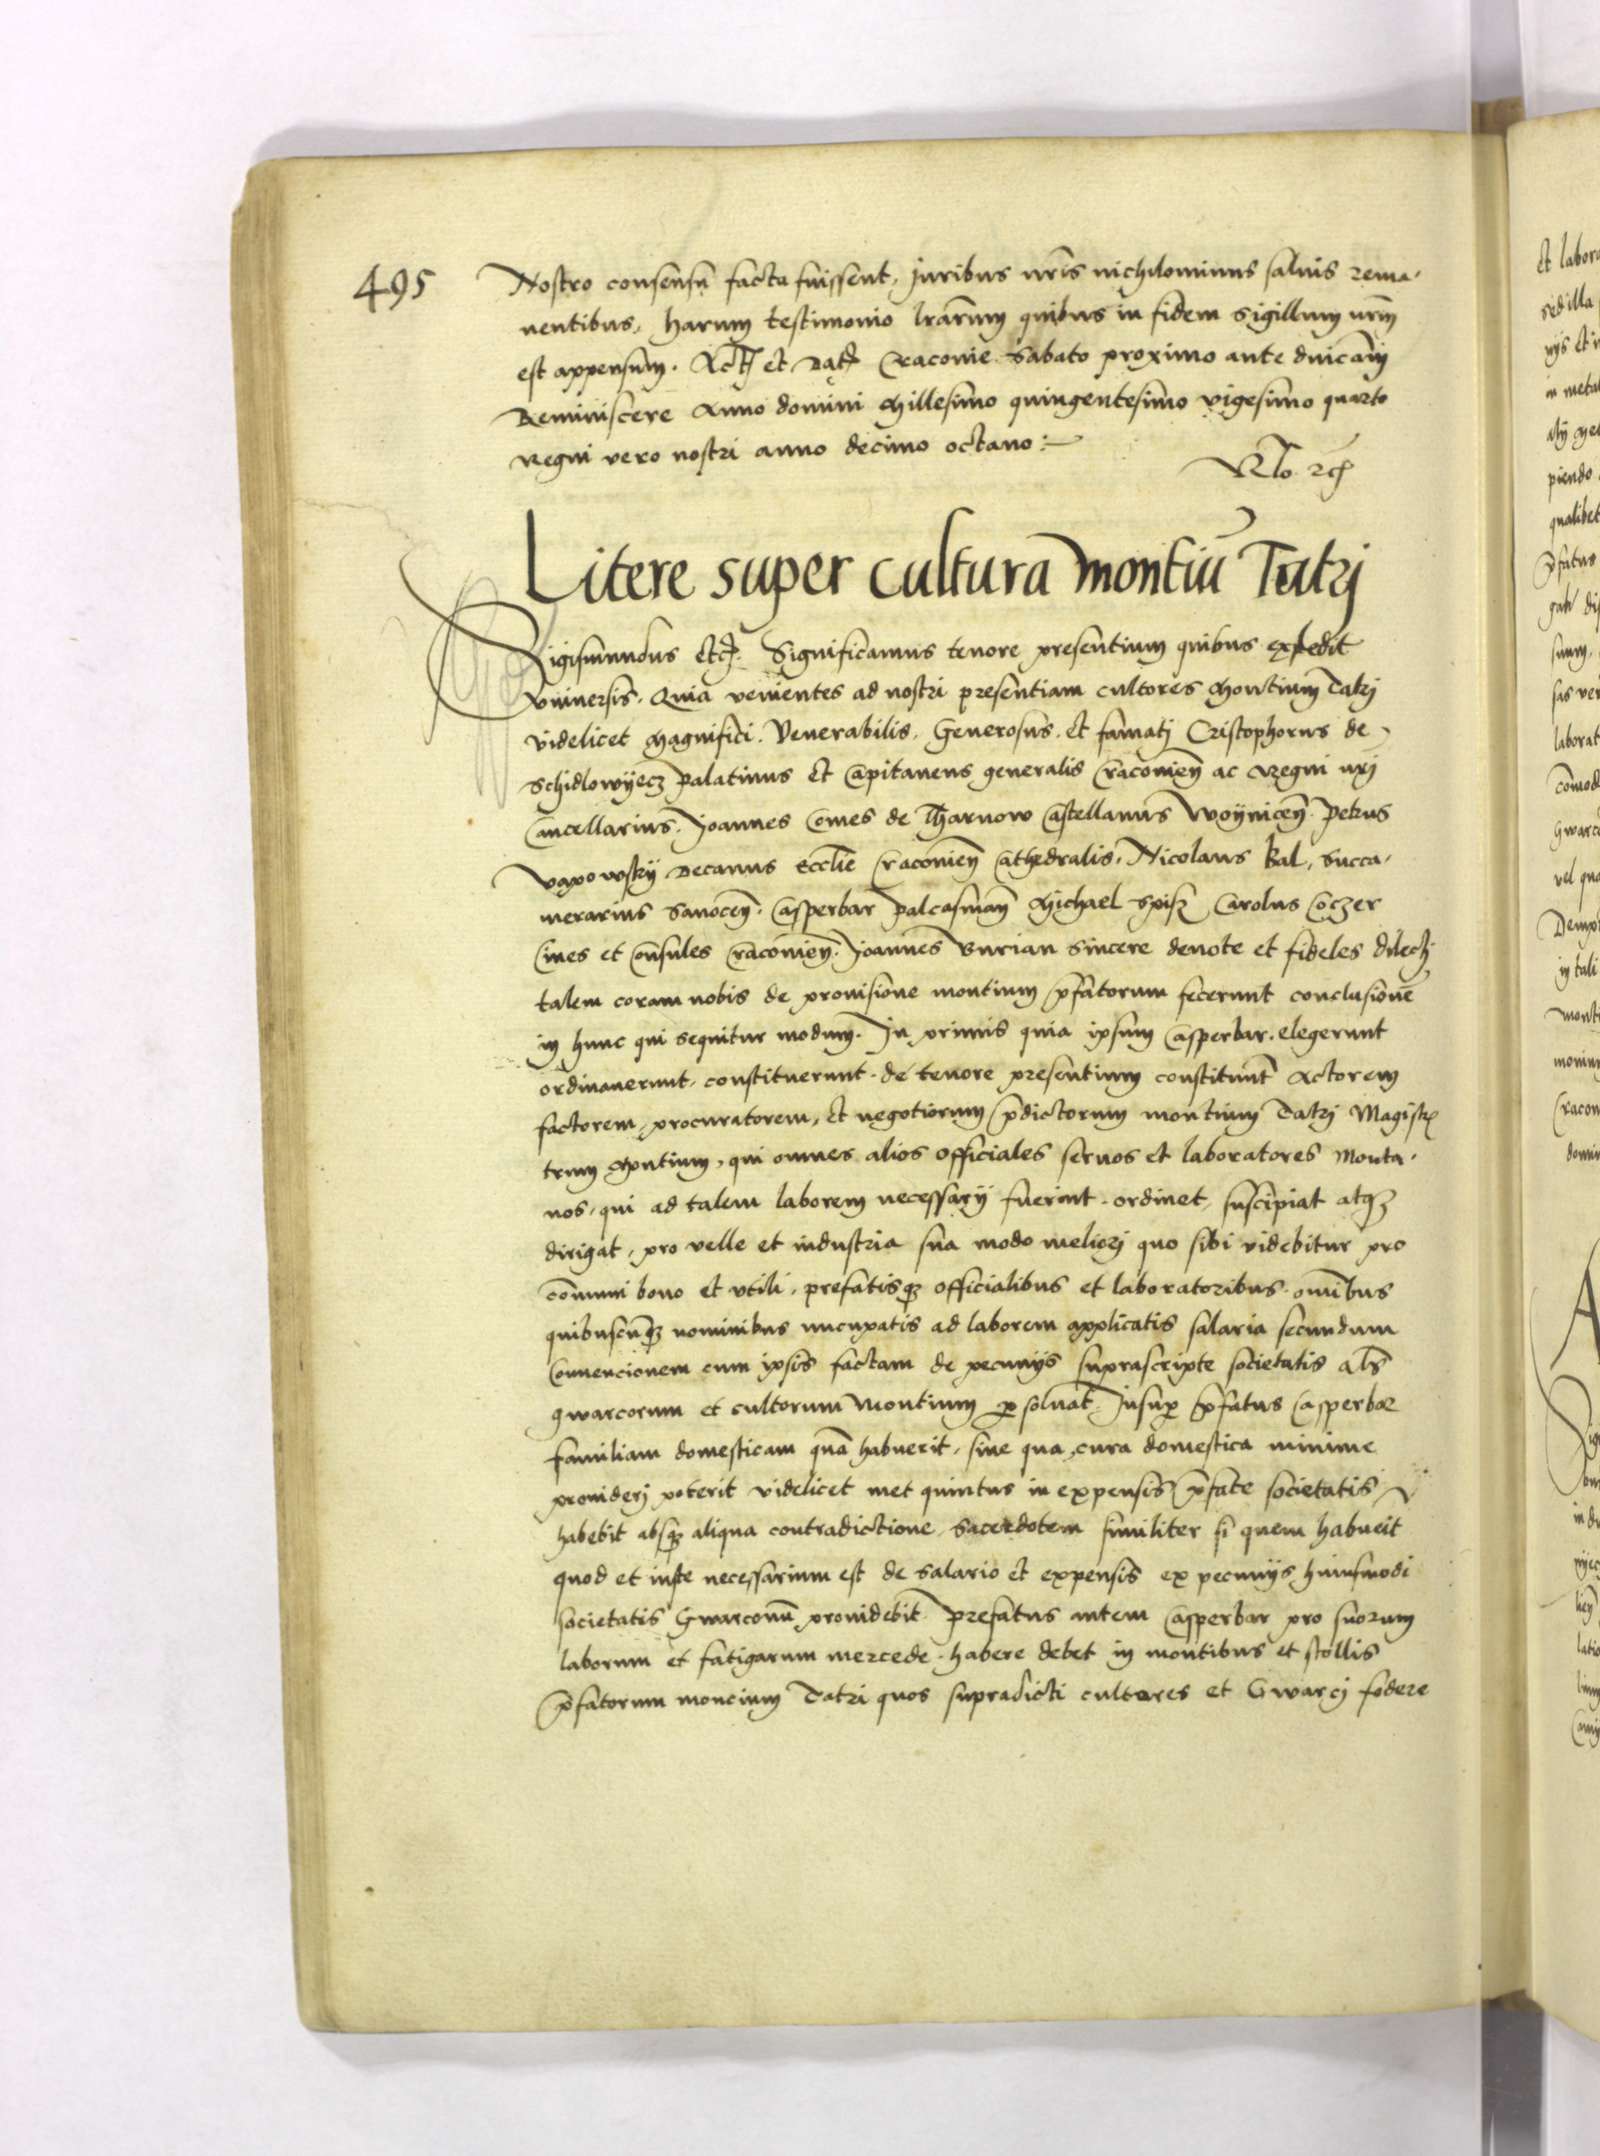 495
Nostro consensu facta fuissent, Juribus nris nichilominus saluis rema-
nentibus, harum testimonio lrarum quibus in fidem Sigillum nrm
est appensum. Act et Dat Cracouie Sabato proximo ante dnicam
Reminiscere Anno domini Millesimo quingentesimo vigesimo quarto
Regni vero nostri anno decimo octauo:
Litere super cultura montiū Tatrj
Sigismundus etc. Significamus tenore presentium quibus expedit
vniuersis. Quia venientes ad nostri presentiam cultores Montium Tatrj
videlicet Magnifici. Venerabilis. Generosus. et famatj Cristophorus de
Schidlowyecz palatinus et Capitaneus generalis Cracouien ac Regni nrj
Cancellarius. Joannes Comes de Tharnow Castellanus Woynicen. Petrus
Vapowsky Decanus Ecclie Cracouien Cathedralis. Nicolaus Bal, Succa-
merarius Sanocen. Casperbar palcasman Michael Spisz Carolus Coczer
Ciues et Consules Cracouien. Joannes Burian Sincere deuote et fideles dilectj
talem coram nobis de prouisione montium pfatorum fecerunt conclusionē
in hunc qui sequitur modum. In primis quia ipsum Casperbar. elegerunt
ordinauerunt. constituerunt. de tenore presentium constituunt Actorem
factorem, procuratorem, et negotiorum pdictorum montium Tatrj Magist
trum Montium, qui omnes alios officiales seruos et laboratores Monta-
nos, qui ad talem laborem necessarij fuerint. ordinet, suscipiat atqz
dirigat, pro velle et industria sua modo meliorj quo sibi videbitur pro
cōmuni bono et vtili, prefatisqz officialibus et laboratoribus. omībus
quibuscūqz nominibus nucupatis ad laborem applicatis salaria secundum
Conuencionem cum ipsis factam de pecunijs suprascripte societatis als
gwarcorum et cultorum Montium psoluat. Insup pfatus Casperbar
familiam domesticam quā habuerit, sine qua cura domestica minime
prouiderj poterit videlicet met quintus in expensis pfate societatis
habebit absqz aliqua contradictione. Sacerdotem similiter si quem habueit
quod et iuste necessarium est de salario et expensis ex pecunijs huiusmodi
societatis Gwarconū prouidebit. Prefatus autem Casperbar pro suorum
laborum et fatigarum mercede. habere debet in montibus et stollis
pfatorum moncium Tatri quos supradicti cultores et Gwarcj fodere